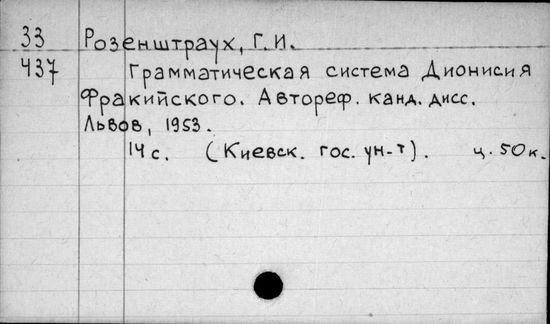 33 Розенштраух, Г. И.
437 Грамматическая система Дионисия
Фракийского. Автореф. канд. дисс.
Львов, 1953.
14 с. (Киевск. гос. ун-т). ц. 50 к.